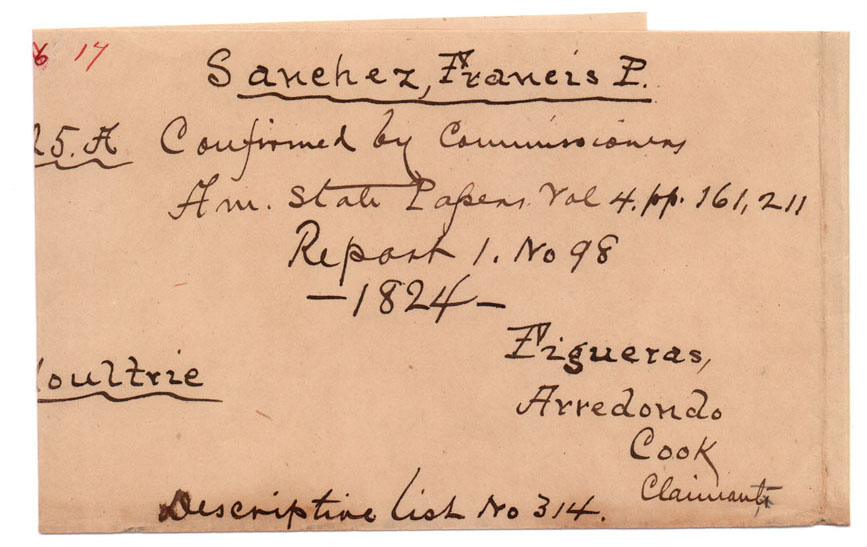 17
Sanchez, Francis P.
25.A Confirmed by Commissioners
Am. State Papers. Vol 4. pp. 161, 211
Report 1. No 98
—1824—
Figueras,
oultrie
Arredondo
Cook
Claimant
Descriptive list No 314.